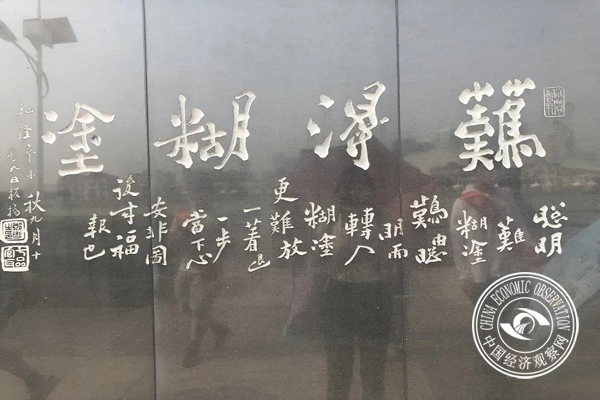 難得糊塗
聰明
難
糊塗
難由聰
明而
轉入
糊塗
更難放
一著退
一步
當下心
安非圖
後来福
報也
乾隆辛未秋九月十
板橋
CHINA ECONOMIC OBSERVATION
中国经济观察网